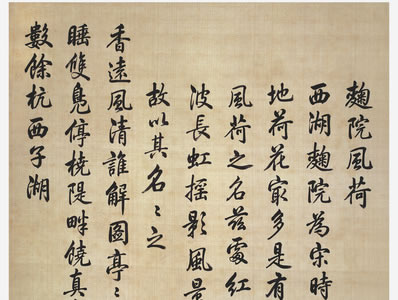 麯院風荷
西湖麯院為宋時
地荷花㝡多是有
風荷之名茲處紅
波長虹摇影風景
故以其名〻之
香遠風清誰解圖亭〻
睡雙鳬停橈隄畔饒真
數餘杭西子湖